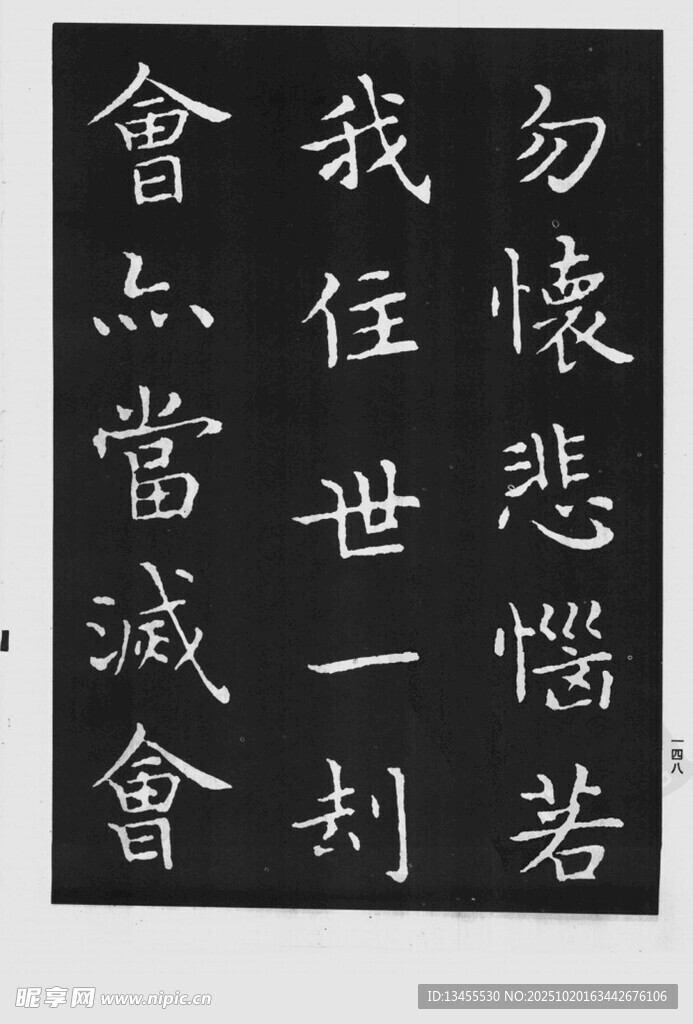 勿懷悲惱若
我住世一刧
會亦當滅會
一四八
昵享网 www.nipic.cn
ID:13455530 NO:20251020163442676106